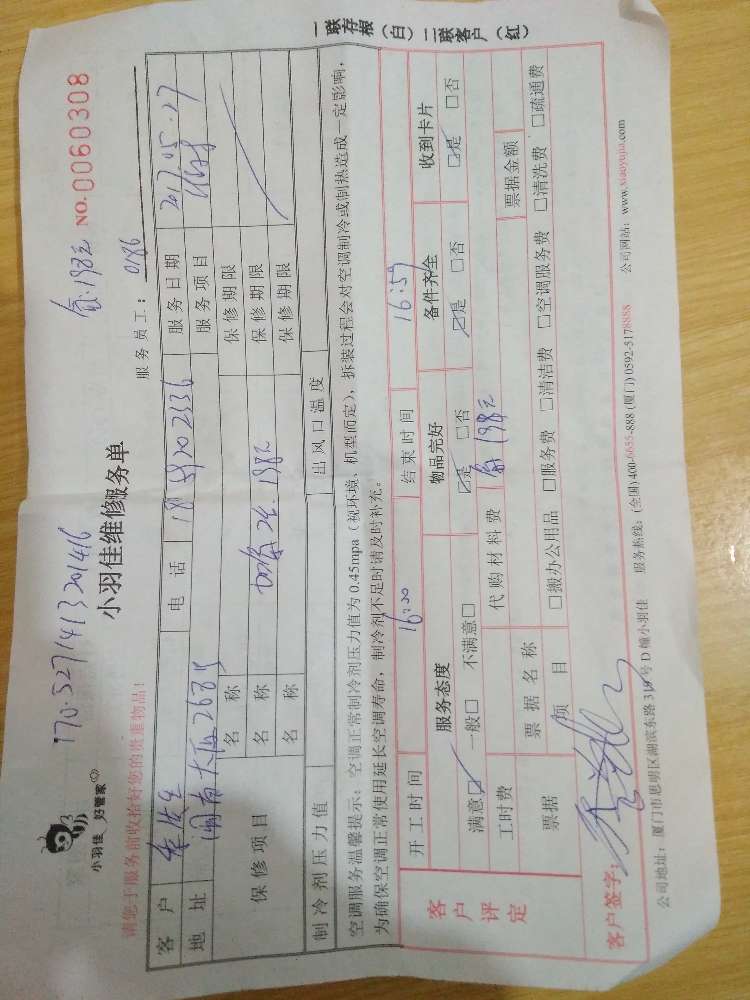 170.5271413201416
余:198元 NO.0060308
小羽佳 好管家
小羽佳维修服务单
服务员工: 0186
请您于服务前收拾好您的贵重物品!
客户 电话 服务日期 2017.05.27
地址 服务项目
保修项目 名称 保修期限
名称 保修期限
名称 保修期限
制冷剂压力值 出风口温度
空调服务温馨提示:空调正常制冷剂压力值为0.45mpa(视环境、机型而定),拆装过程会对空调制冷或制热造成一定影响,
为确保空调正常使用延长空调寿命,制冷剂不足时请及时补充。
客户评定
开工时间 16:20 结束时间 16:59
服务态度 物品完好 备件齐全 收到卡片
满意☑ 一般□ 不满意□ ☑是 □否 ☑是 □否 ☑是 □否
工时费 代购材料费 198元
票据 票据名称 票据金额
项目 □搬办公用品 □服务费 □清洁费 □空调服务费 □清洗费 □疏通费
客户签字:
公司地址:厦门市思明区湖滨东路319号D幢小羽佳 服务热线:(全国)400-6655-888(厦门)0592-5178888 公司网站:www.xiaoyujia.com
一联存根(白)二联客户(红)